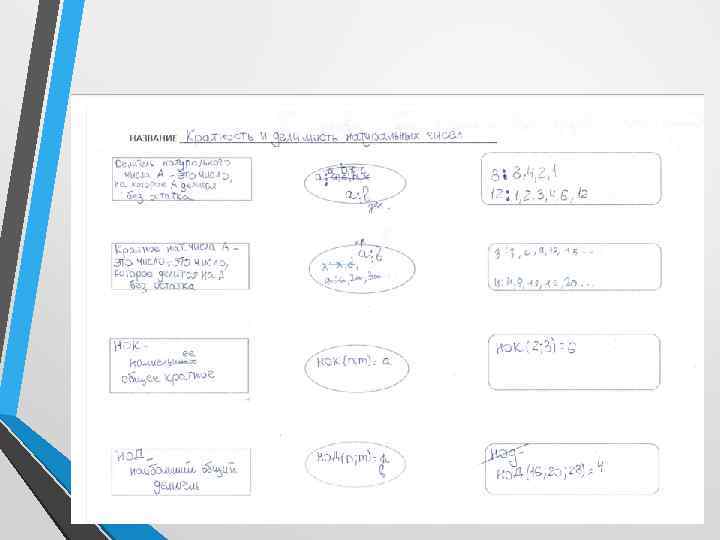 НАЗВАНИЕ Кратность и делимость натуральных чисел
Делитель натурального
числа А - это число,
на которое А делится
без остатка
a⋮b
8⋮ 8,4,2,1
12⋮ 1,2,3,4,6,12
Кратное нат. числа А -
это число, это число,
которое делится на А
без остатка
a⋮b
НОК -
наименьшее
общее кратное
НОК(n;m)=a
НОК(2;3)=6
НОД -
наибольший общий
делитель
НОД(n;m)=
НОД-
НОД(16,20,28)=4